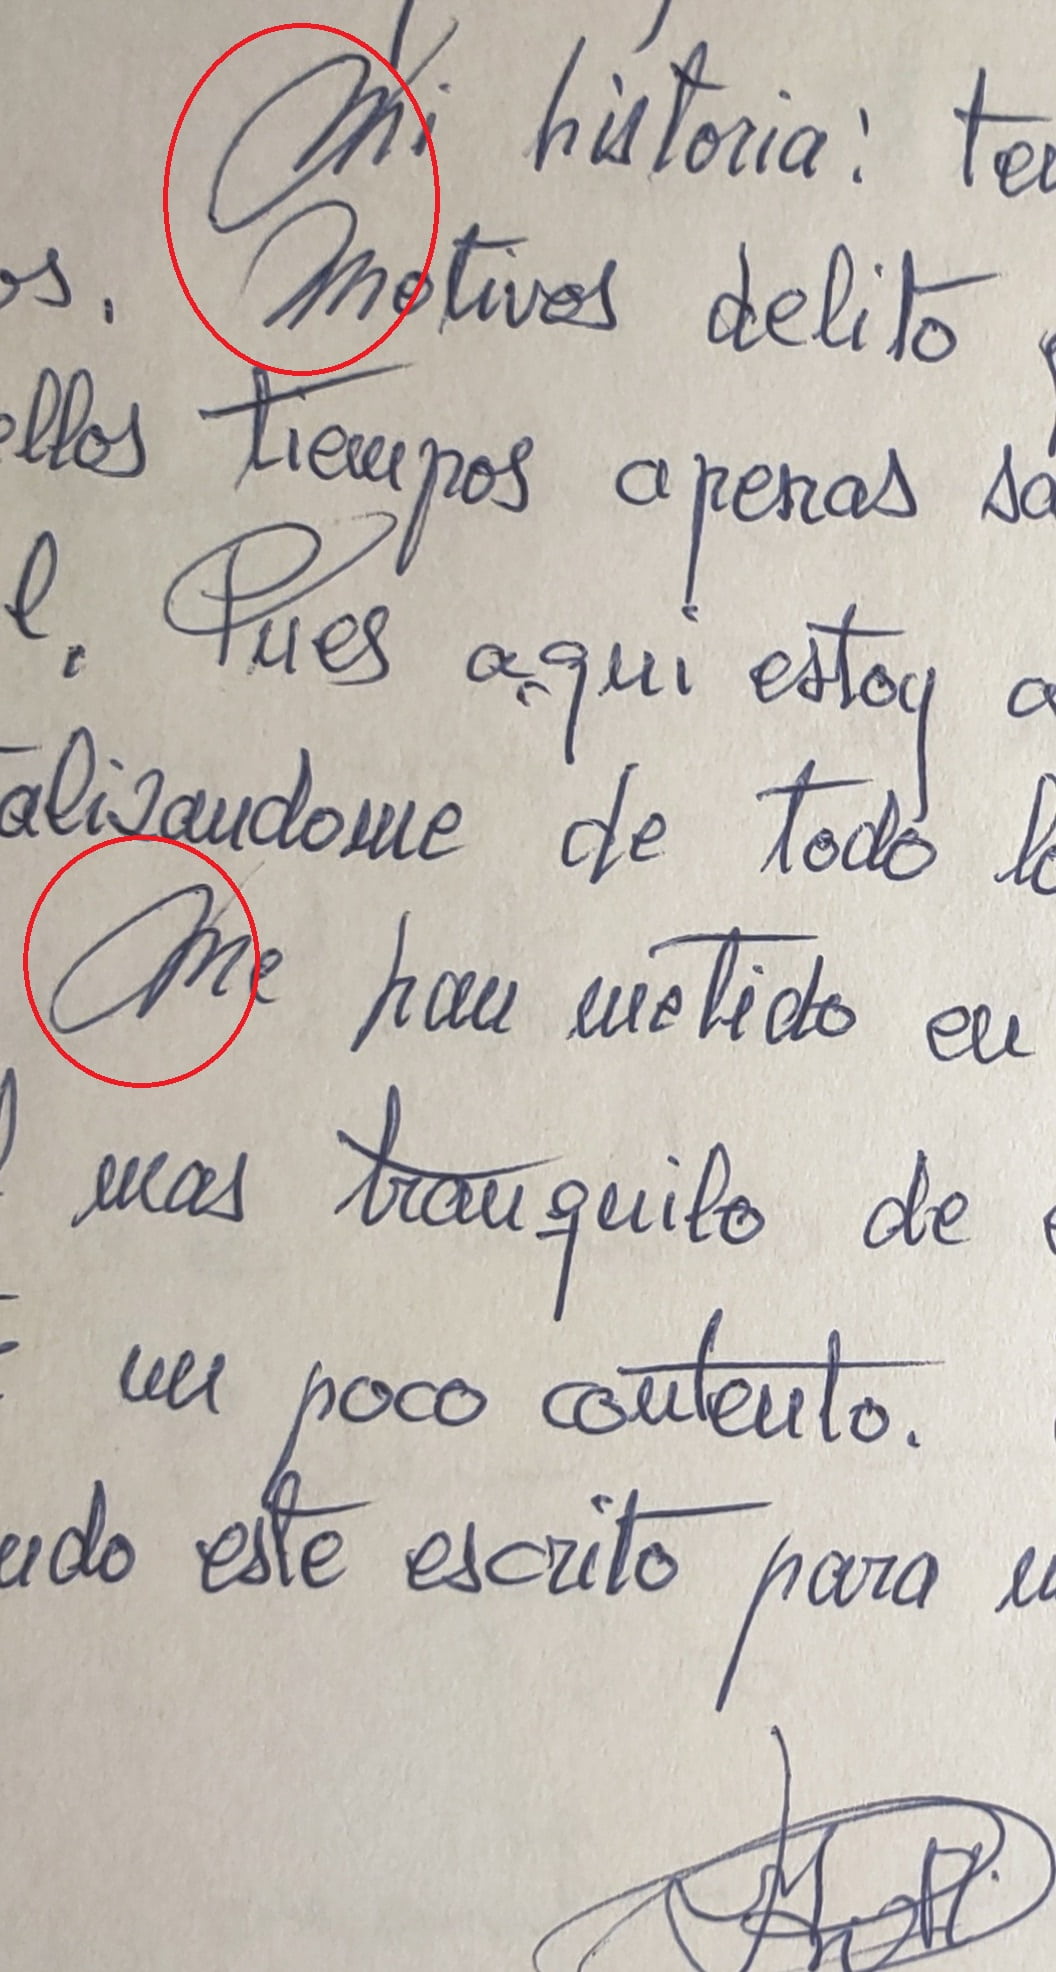 Mi historia: ten
os. Motivos delito
ellos tiempos apenas sa
l. Pues aqui estoy a
alizandome de todo lo
Me han metido en
mas tranquilo de
un poco contento.
ndo este escrito para